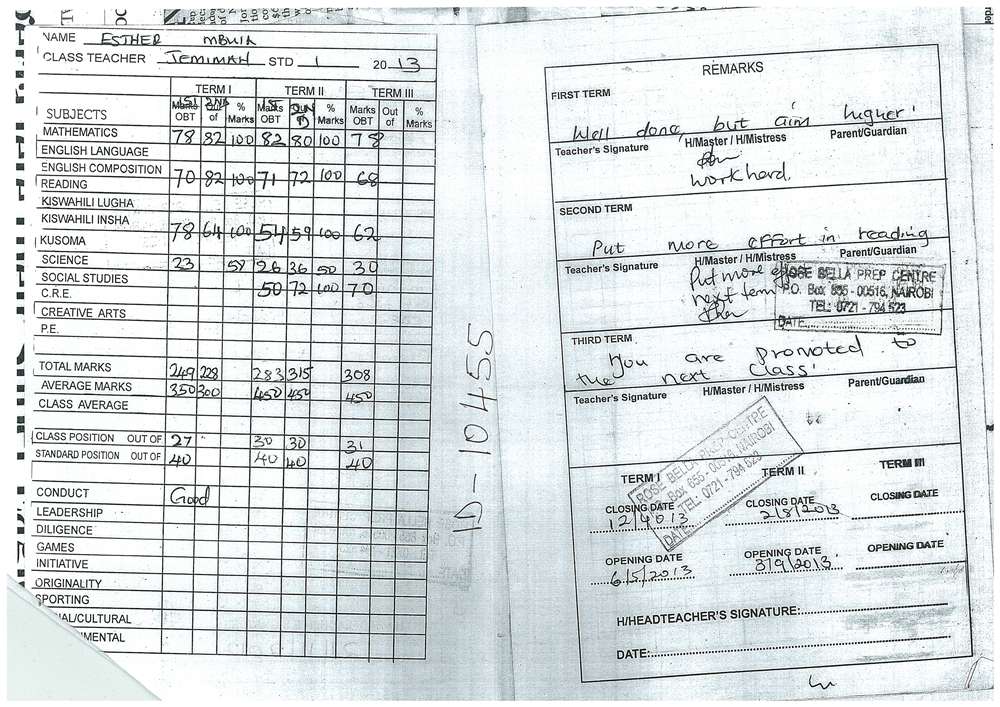 NAME ESTHER
CLASS TEACHER JEMIMAH STD 1 2013
TERM I TERM II TERM III
SUBJECTS 1ST Marks OBT 2ND Out of % Marks 1ST Marks OBT Out of % Marks Marks OBT Out of % Marks
MATHEMATICS 78 82 100 82 80 100 78
ENGLISH LANGUAGE
ENGLISH COMPOSITION
READING 70 82 100 71 72 100 68
KISWAHILI LUGHA
KISWAHILI INSHA
KUSOMA 78 64 100 54 59 100 62
SCIENCE 23 50 26 36 50 30
SOCIAL STUDIES
C.R.E. 50 72 100 70
CREATIVE ARTS
P.E.
TOTAL MARKS 249 228 283 315 308
AVERAGE MARKS 350 300 450 450 450
CLASS AVERAGE
CLASS POSITION OUT OF 27 30 30 31
STANDARD POSITION OUT OF 40 40 40 40
CONDUCT Good
LEADERSHIP
DILIGENCE
GAMES
INITIATIVE
ORIGINALITY
SPORTING
IAL/CULTURAL
MENTAL
ID-10455
REMARKS
FIRST TERM
Well done, but aim higher!
Teacher's Signature H/Master / H/Mistress Parent/Guardian
work hard.
SECOND TERM
Put more effort in reading
Teacher's Signature H/Master / H/Mistress Parent/Guardian
Put more
next term
ROSE BELLA PREP CENTRE
P.O. Box 655 - 00516, NAIROBI
TEL: 0721 - 794 523
DATE
THIRD TERM
You are promoted to
the next class'
Teacher's Signature H/Master / H/Mistress Parent/Guardian
ROSE BELLA PREP CENTRE
Box 655 - 00516, NAIROBI
TEL: 0721 - 794 523
DATE
TERM I TERM II TERM III
CLOSING DATE CLOSING DATE CLOSING DATE
12/4013 2/8/2013
OPENING DATE OPENING DATE OPENING DATE
6/5/2013 3/9/2013
H/HEADTEACHER'S SIGNATURE:
DATE: